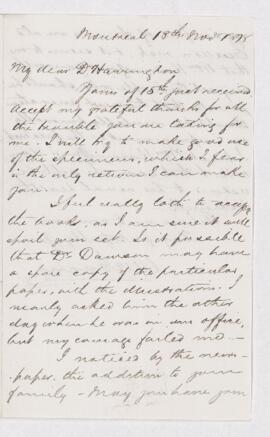 Montreal 18th Nov. 1878
My dear Dr Harrington
Yours of 15th just received
accept my grateful thanks for all
the trouble you are taking for
me. I will try to make good use
of the specimens, which I fear
is the only return I can make
you.
I feel really loth to accept
the books, as I am sure it will
spoil your set. Is it possible
that Dr Dawson may have
a spare copy of the particular
paper, with the illustrations. I
nearly asked him the other
day when he was in our office,
but my courage failed me —
I noticed by the news-
-paper, the addition to your
family — May you have